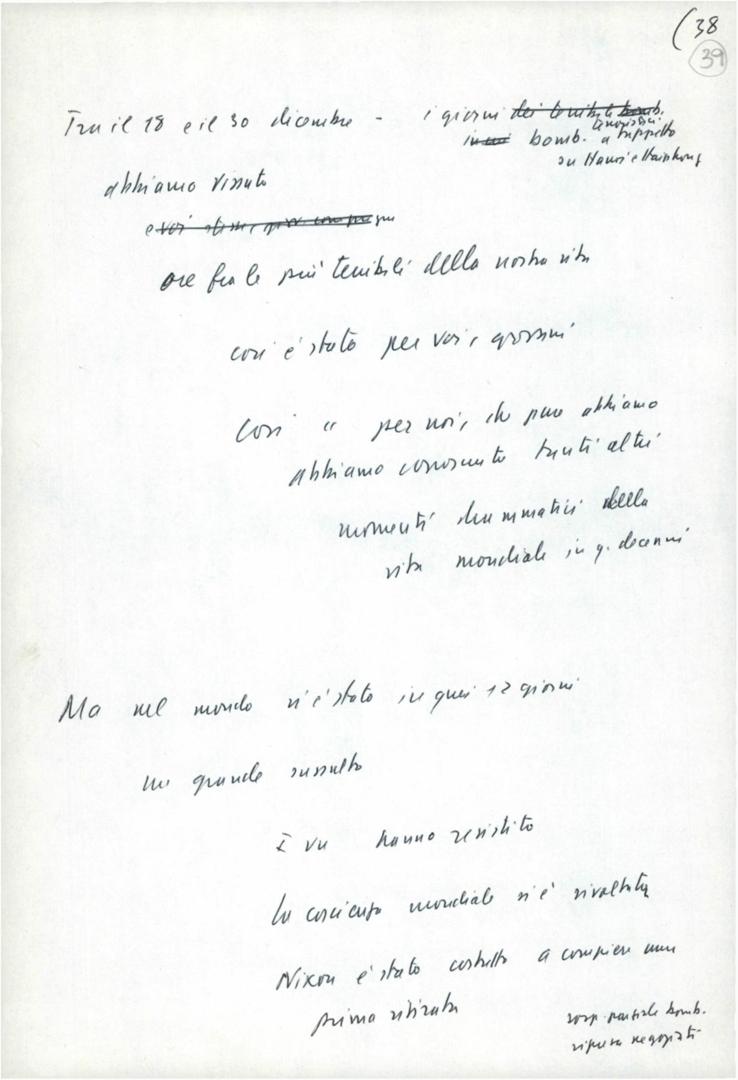 (38
39
Tra il 18 e il 30 dicembre - i giorni dei terribili bomb.
terroristici
bomb. a tappeto
su Hanoi e Haiphong
abbiamo vissuto
e voi
ore fra le più terribili della nostra vita
così è stato per voi, giovani
Così " per noi, che pure abbiamo
abbiamo conosciuto tanti altri
momenti drammatici della
vita mondiale in q. decenni
Ma nel mondo vi è stato in quei 12 giorni
un grande sussulto
I vn hanno resistito
la coscienza mondiale si è rivoltata
Nixon è stato costretto a compiere una
prima ritirata
sosp. parziale bomb.
ripresa negoziati